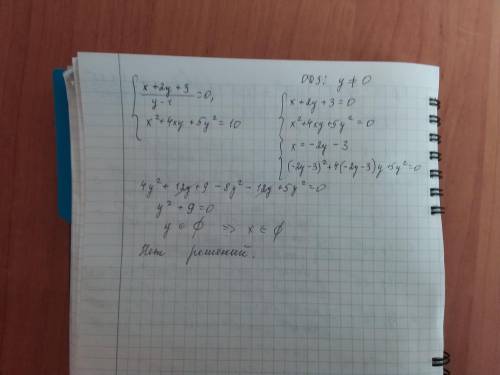 ОДЗ: y ≠ 0
{ (x + 2y + 3)/(y - 1) = 0,
x² + 4xy + 5y² = 10
{ x + 2y + 3 = 0
x² + 4xy + 5y² = 0
x = -2y - 3
(-2y-3)² + 4(-2y-3)y + 5y² = 0
4y² + 12y + 9 - 8y² - 12y + 5y² = 0
y² + 9 = 0
y ∈ ∅ => x ∈ ∅
Нет решений.